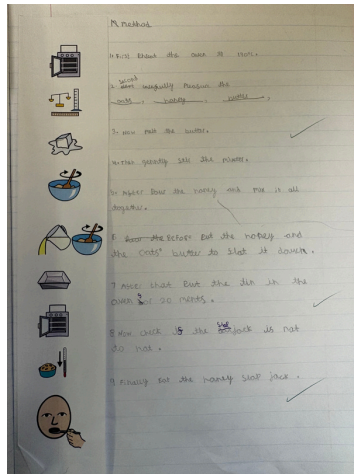 M method
1. First Preheat the oven to 190°c.
2. secont carefully measure the
oats, honey, water.
3. now melt the butter.
4. then gently stir the mixture.
5. After Pour the honey and mix it all
together.
6 Before Put the honey and
the oats' butter to flat it down.
7 After that Put the tin in the
oven for 20 ments.
8 Now check is the Slap jack is not
to hot.
9 Finally eat the honey Slap jack.